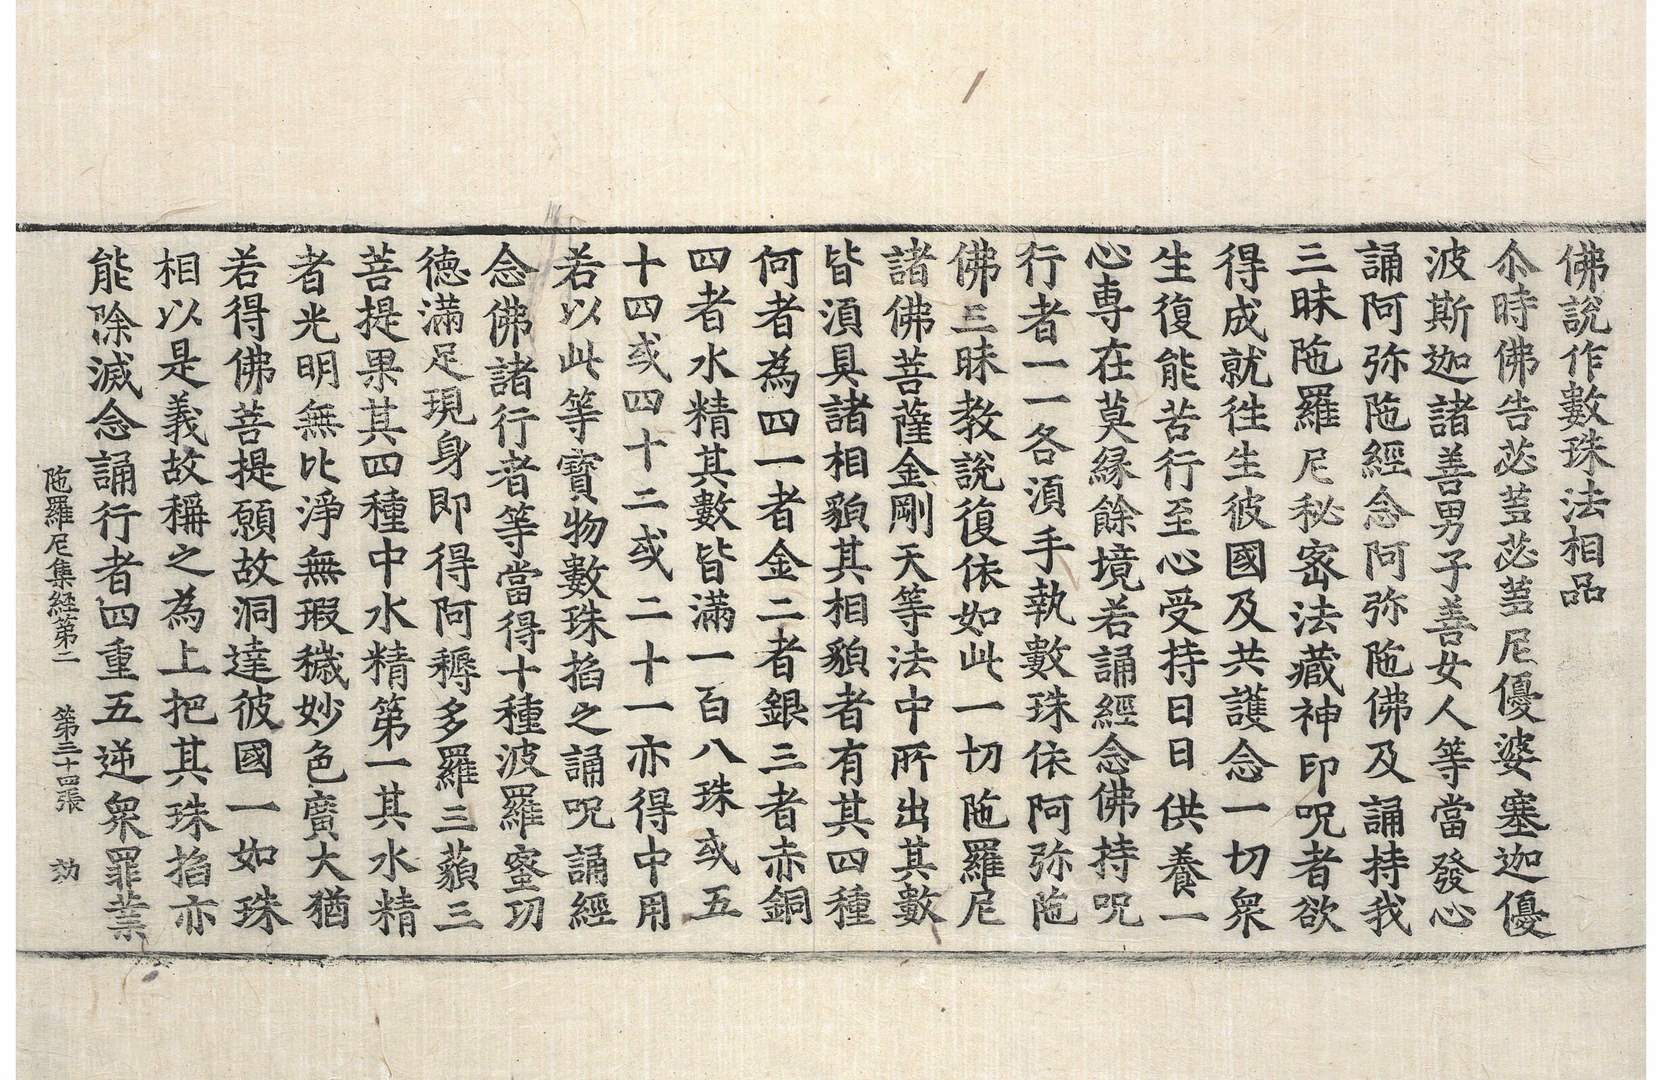 佛說作數珠法相品
尒時佛告苾蒭苾蒭尼優婆塞迦優
波斯迦諸善男子善女人等當發心
誦阿弥陁經念阿弥陁佛及誦持我
三昧陁羅尼秘密法藏神印呪者欲
得成就徃生彼國及共護念一切衆
生復能苦行至心受持日日供養一
心專在莫緣餘境若誦經念佛持呪
行者一一各湏手執數珠依阿弥陁
佛三昧教說復依如此一切陁羅尼
諸佛菩薩金剛天等法中所出其數
皆湏具諸相貌其相貌者有其四種
何者為四一者金二者銀三者赤銅
四者水精其數皆滿一百八珠或五
十四或四十二或二十一亦得中用
若以此等寶物數珠掐之誦呪誦經
念佛諸行者等當得十種波羅蜜功
德滿足現身即得阿耨多羅三藐三
菩提果其四種中水精第一其水精
者光明無比淨無瑕穢妙色廣大猶
若得佛菩提願故洞達彼國一如珠
相以是義故稱之為上把其珠掐亦
能除滅念誦行者四重五逆衆罪業
陁羅尼集經第二　第二十四張　劾